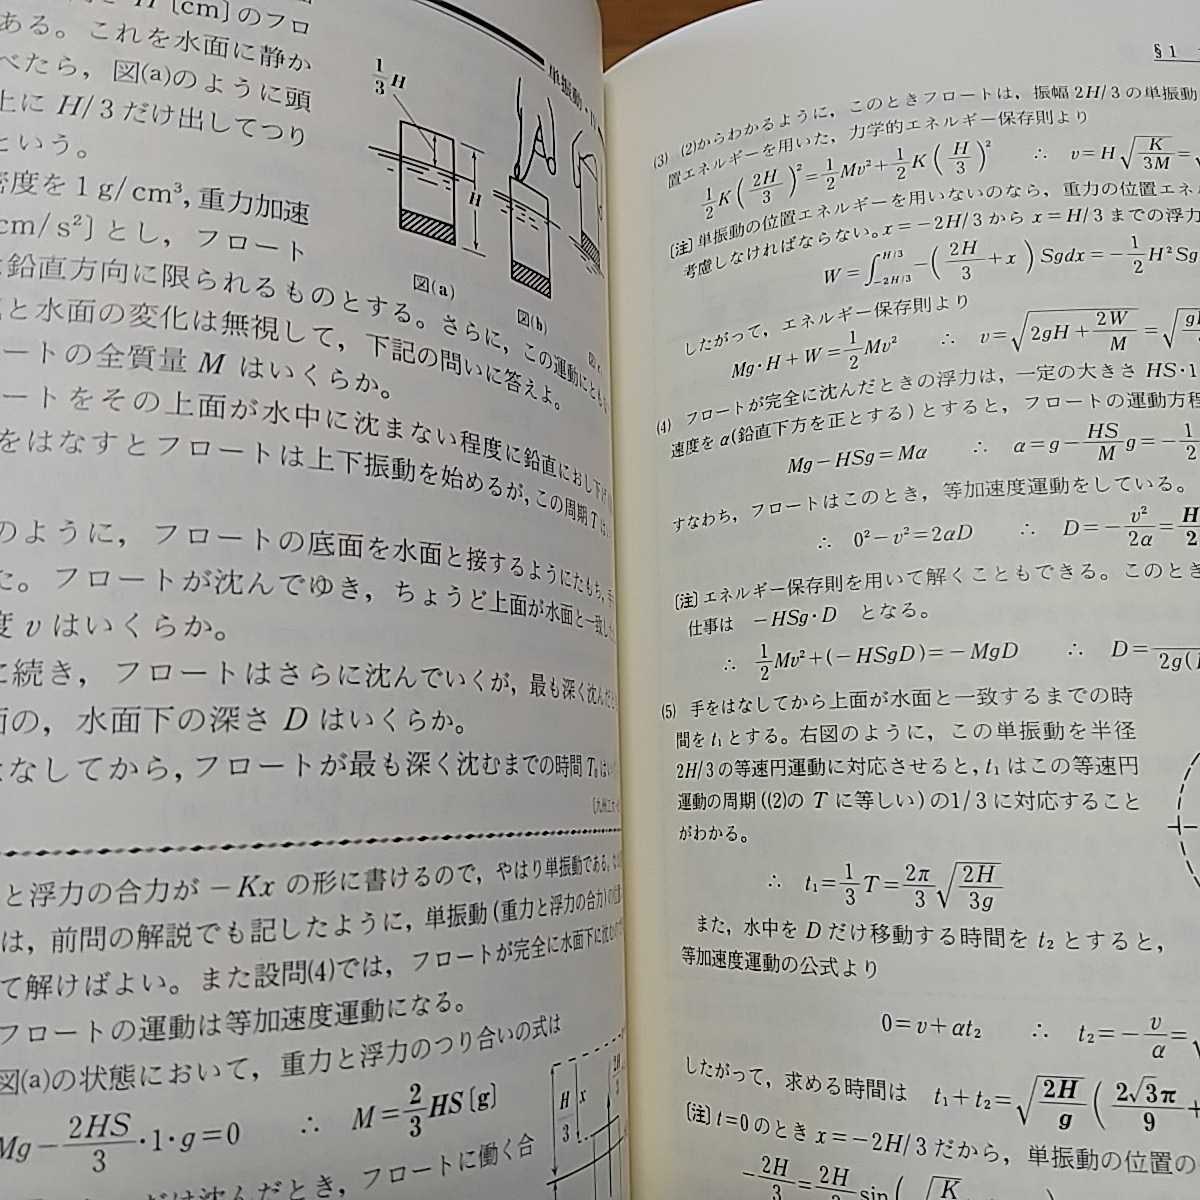 H〔cm〕のフロ
ある。これを水面に静か
べたら，図(a)のように頭
上に H/3 だけ出してつり
という。
密度を 1 g/cm³, 重力加速
〔cm/s²〕とし，フロート
鉛直方向に限られるものとする。さらに，この運動にともな
と水面の変化は無視して，下記の問いに答えよ。
ートの全質量 M はいくらか。
ートをその上面が水中に沈まない程度に鉛直におし下げ
をはなすとフロートは上下振動を始めるが，この周期 T は
のように，フロートの底面を水面と接するようにたもち，手
た。フロートが沈んでゆき，ちょうど上面が水面と一致した
度 v はいくらか。
に続き，フロートはさらに沈んでいくが，最も深く沈んだ
面の，水面下の深さ D はいくらか。
はなしてから，フロートが最も深く沈むまでの時間 T₀ は
1/3 H
H
図(a)
図(b)
単振動・
と浮力の合力が −Kx の形に書けるので，やはり単振動である。
は，前問の解説でも記したように，単振動 (重力と浮力の合力) の
て解けばよい。また設問(4)では，フロートが完全に水面下に沈む
フロートの運動は等加速度運動になる。
図(a)の状態において，重力と浮力のつり合いの式は
Mg − 2HS/3 ・1・g = 0 ∴ M = 2/3 HS〔g〕
だけ沈んだとき，フロートに働く合
H/3 x 2H/3
§1
(3) (2)からわかるように，このときフロートは，振幅 2H/3 の単振動
置エネルギーを用いた，力学的エネルギー保存則より
1/2 K(2H/3)² = 1/2 Mv² + 1/2 K(H/3)² ∴ v = H√(K/3M) =
〔注〕単振動の位置エネルギーを用いないのなら，重力の位置エネ
考慮しなければならない。x = −2H/3 から x = H/3 までの浮力
W = ∫_{−2H/3}^{H/3} −(2H/3 + x) Sgdx = −1/2 H²Sg
したがって，エネルギー保存則より
Mg・H + W = 1/2 Mv² ∴ v = √(2gH + 2W/M) =
(4) フロートが完全に沈んだときの浮力は，一定の大きさ HS・1
速度を α(鉛直下方を正とする) とすると，フロートの運動方程
Mg − HSg = Mα ∴ α = g − HS/M g = −1/2
すなわち，フロートはこのとき，等加速度運動をしている。
∴ 0² − v² = 2αD ∴ D = −v²/2α =
〔注〕エネルギー保存則を用いて解くこともできる。このとき
仕事は −HSg・D となる。
∴ 1/2 Mv² + (−HSgD) = −MgD ∴ D =
(5) 手をはなしてから上面が水面と一致するまでの時
間を t₁ とする。右図のように，この単振動を半径
2H/3 の等速円運動に対応させると，t₁ はこの等速円
運動の周期 ((2)の T に等しい) の1/3 に対応すること
がわかる。
∴ t₁ = 1/3 T = 2π/3 √(2H/3g)
また，水中を D だけ移動する時間を t₂ とすると，
等加速度運動の公式より
0 = v + αt₂ ∴ t₂ = −v/α =
したがって，求める時間は t₁ + t₂ = √(2H/g) (2√3π/9 +
〔注〕t = 0 のとき x = −2H/3 だから，単振動の位置の
−2H/3 = 2H/3 sin(√K